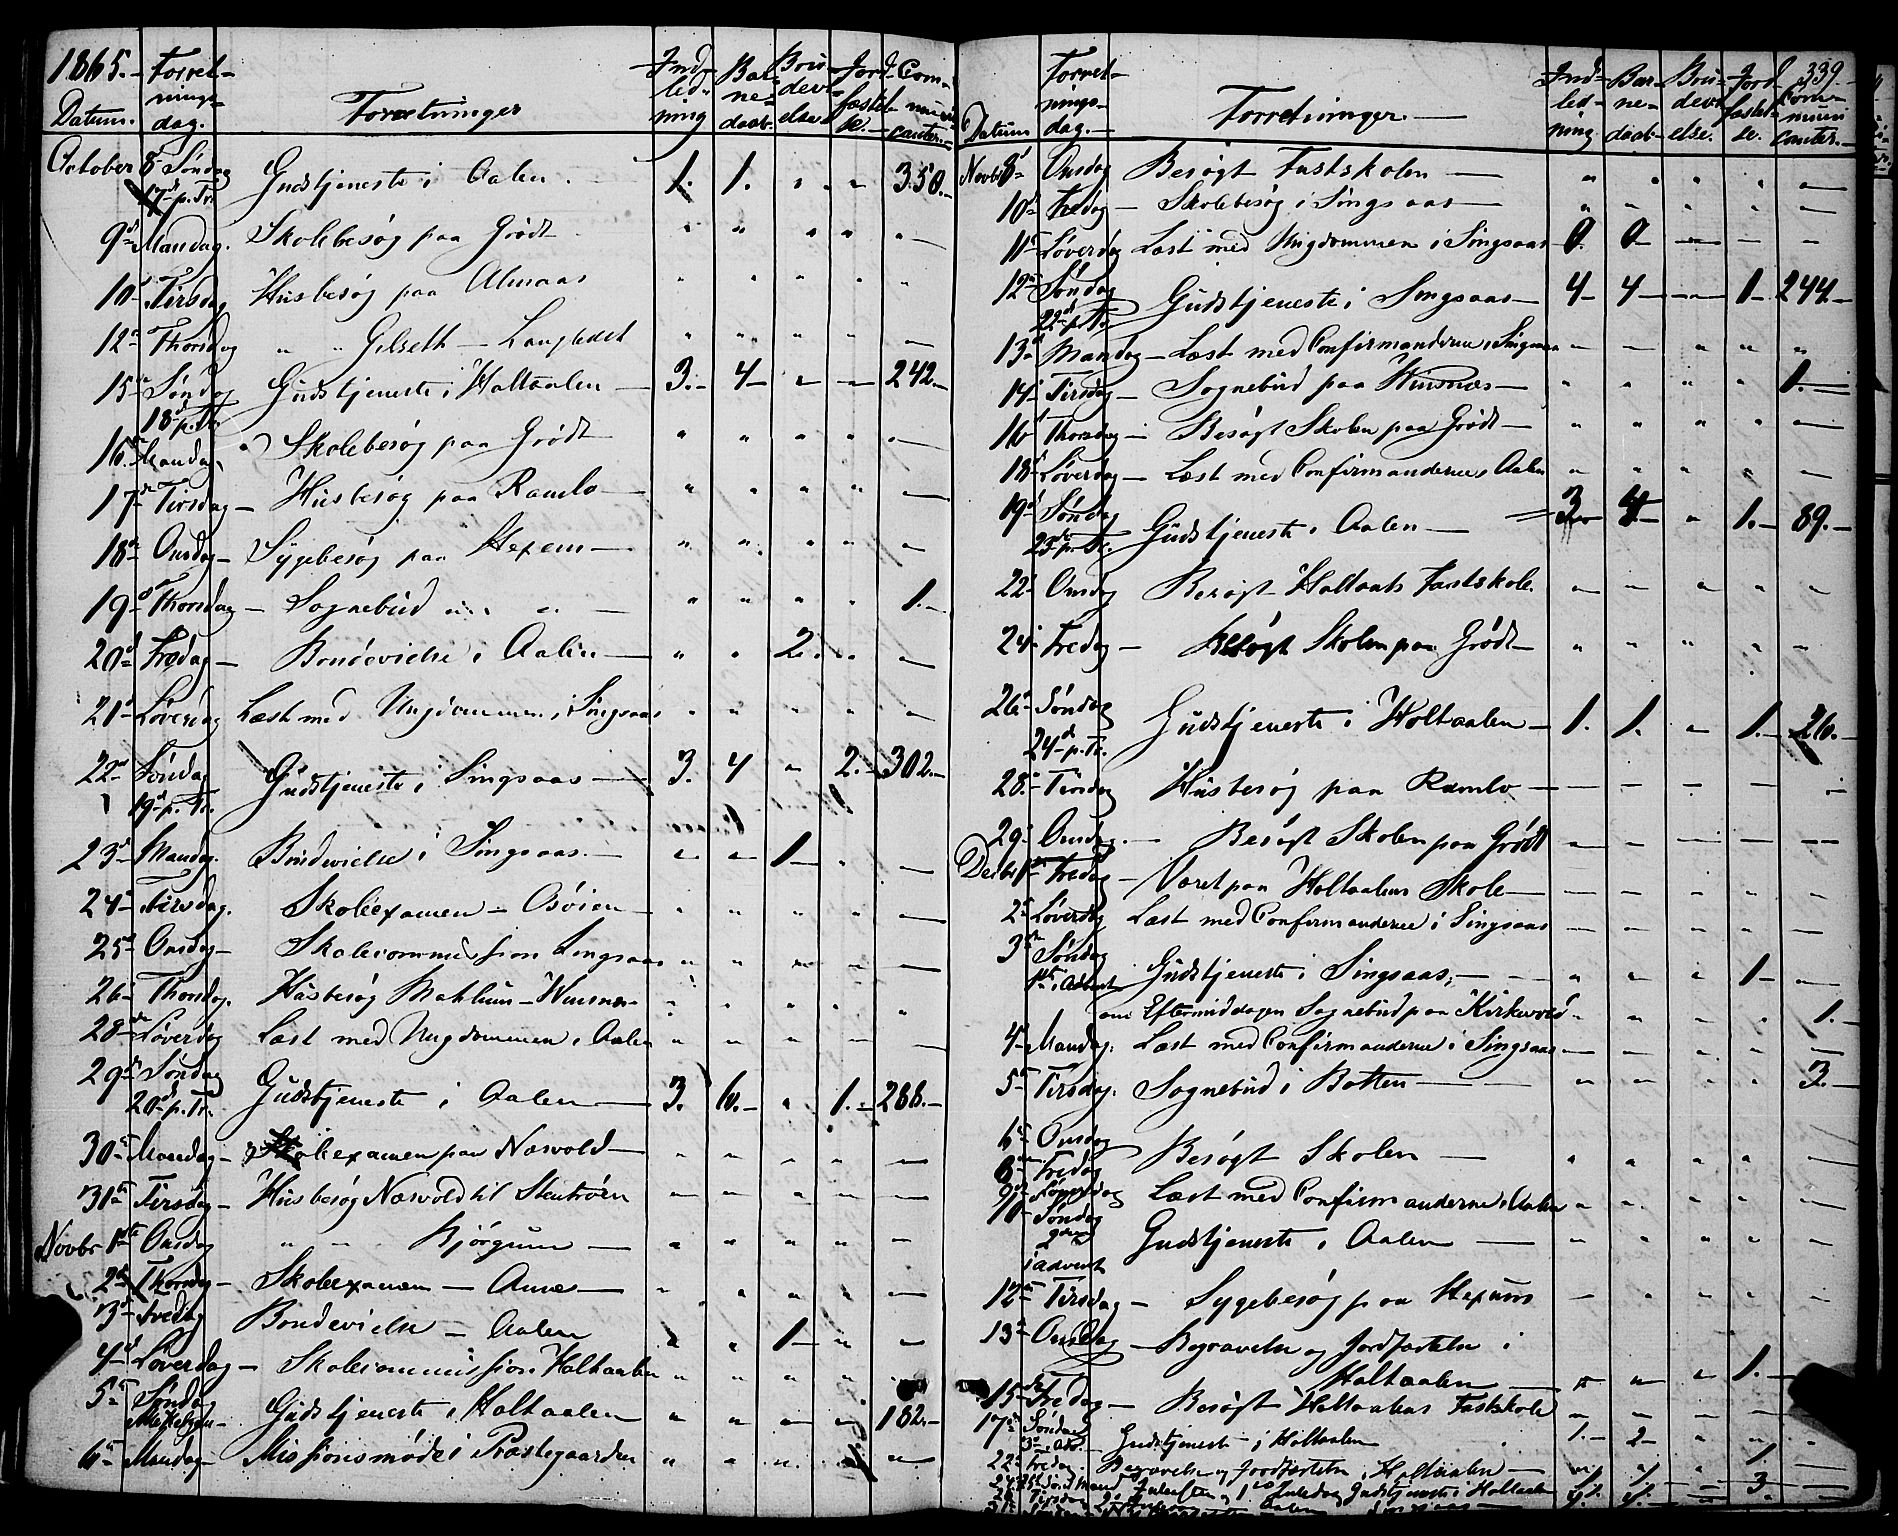 1865.
Datum. Forretnings- dag. Forretninger Indledning Barnedaab Brudevielse Jordfæstelse. Communicanter.
October 8 Søndag Gudstjeneste i Aalen. 1. 1. " " 350.
17de p. Tr.
9de Mandag. Skolebesøg paa Grødt " " " " "
10de Tirsdag Husbesøg paa Almaas " " " " "
12te Thorsdag " " Gilseth - Langledet " " " " "
15de Søndag Gudstjeneste i Holtaalen 3. 4 " " 242.
18de p. Tr.
16de Mandag Skolebesøg paa Grødt " " " " "
17de Tirsdag Husbesøg paa Ramlo " " " " "
18de Onsdag Sygebesøg paa Hexem " " " " "
19de Thorsdag Sognebud " " " " " " 1.
20de Fredag Brudevielse i Aalen " " 2. " "
21de Løverdag Læst med Ungdommen i Singsaas " " " " "
22de Søndag Gudstjeneste i Singsaas 3. 4 " 2. 302.
19de p. Tr.
23de Mandag. Brudevielse i Singsaas. " " 1 " "
24de Tirsdag. Skoleexamen - Osøien " " " " "
25de Onsdag Skolecommission Singsaas " " " " "
26de Thorsdag. Husbesøg " " " " "
28de Løverdag Læst med Ungdommen i Aalen " " " " "
29de Søndag Gudstjeneste i Aalen 3. 6. " 1. 288.
20de p. Tr.
30te Mandag Skoleexamen paa Næsvold " " " " "
31te Tirsdag Husbesøg Næsvold til " " " " "
Novbr 1ste Onsdag " " Bjørgum " " " " "
2den Thorsdag Skoleexamen - Aunes " " " " "
3die Fredag Brudevielse - Aalen " " 1 " "
4de Løverdag Skolecommission Holtaalen " " " " "
5te Søndag Gudstjeneste i Holtaalen " " " " 182.
6te Mandag Missionsmøde i Præstegaarden " " " " "
339
Datum Forretnings- dag. Forretninger. Indledning Barnedaab Brudevielse. Jordfæstelse. Communicanter.
Novbr 8de Onsdag Besøgt Fastskolen " " " " "
10de Fredag Skolebesøg i Singsaas " " " " "
11te Løverdag Læst med Ungdommen i Singsaas 0. 0 " " "
12te Søndag Gudstjeneste i Singsaas 4 4 " 1 244
22de p. Tr.
13de Mandag Læst med Confirmanderne i Singsaas " " " " "
14de Tirsdag Sognebud paa " " " " 1.
16de Thorsdag Besøgt Skolen paa Grødt " " " " "
18de Løverdag Læst med Confirmanderne i Aalen " " " " "
19de Søndag Gudstjeneste i Aalen 3 4 " 1. 89.
23de p. Tr.
22de Onsdag Besøgt Holtaals Fastskole. " " " " "
24de Fredag Besøgt Skolen paa Grødt " " " " "
26de Søndag Gudstjeneste i Holtaalen 1. 1. " 1. 26.
24de p. Tr.
28de Tirsdag Husbesøg paa Ramlo " " " " "
29de Onsdag. Besøgt Skolen paa Grødt " " " " "
Decbr 1ste Fredag Været paa Holtaalens Skole " " " " "
2den Løverdag Læst med Confirmanderne i Singsaas " " " " "
3die Søndag Gudstjeneste i Singsaas, " " " 1 "
1ste i Advent
om Eftermiddagen Sognebud paa Kirkevold " " " " 1.
4de Mandag. Læst med Confirmanderne i Singsaas " " " " "
5te Tirsdag. Sognebud i Botten " " " " 3.
6te Onsdag Besøgt Skolen " " " " "
8de Fredag
9de Løverdag Læst med Confirmanderne i Aalen " " " " "
10de Søndag Gudstjeneste i Aalen " " " " "
2den
i advent
12te Tirsdag Sygebesøg paa Hexum " " " " "
13de Onsdag Begravelse og Jordfæstelse i
Holtaalen " " " 1. "
15de Fredag Besøgt Holtaalens Fastskole " " " " "
17de Søndag Gudstjeneste i Holtaalen 1. 2 " " "
3de Adv.
22de Fredag Begravelse og Jordfæstelse i Holtaalen " " " 1. "
Juleaften og 1ste Juledag Gudstjeneste i Holtaalen